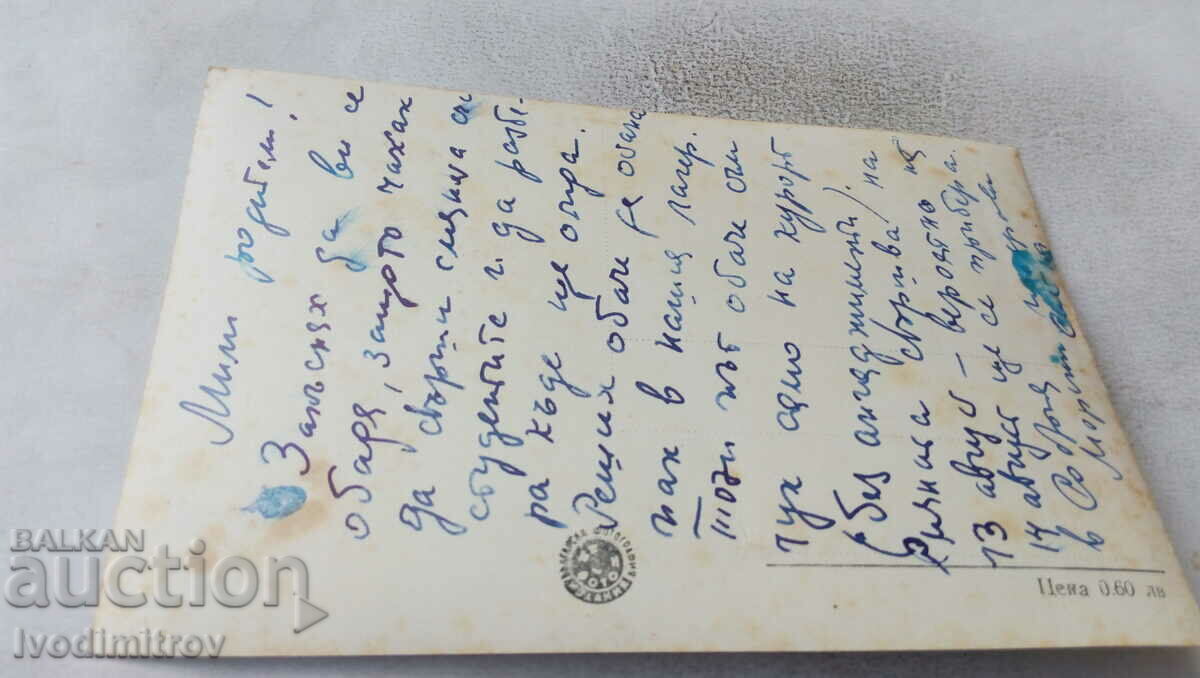 Мили родители!
Закъснях да ви се
обадя, защото чаках
да свърши смяна на
студентите и да разбе-
ра къде ще отида.
Реших обаче да остана
пак в нашия лагер.
Този път обаче съм
тук само на курорт
(без ангажименти).
Смяната свършва на
13 август – вероятно на
14 август ще се прибера.
в София
Цена 0.60 лв
BALKAN
auction
Ivodimitrov